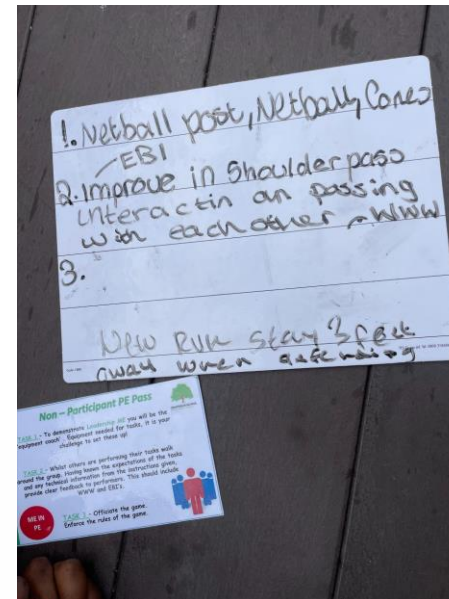 1. Netball post, Netball, Cones
EBI
2. Improve in Shoulder pass
interactin an passing
with each other - WWW
3.
New Run stay 3 feet
away when defending
Non – Participant PE Pass
TASK 1 - To demonstrate Leadership you will be the
'equipment coach'. Equipment needed for tasks, it is your
challenge to set these up!
TASK 2 - Whilst others are performing their tasks walk
around the group. Having known the expectations of the tasks
and any technical information from the instructions given,
provide clear feedback to performers. This should include
WWW and EBI's.
ME IN
PE
TASK 3 - Officiate the game.
Enforce the rules of the game.